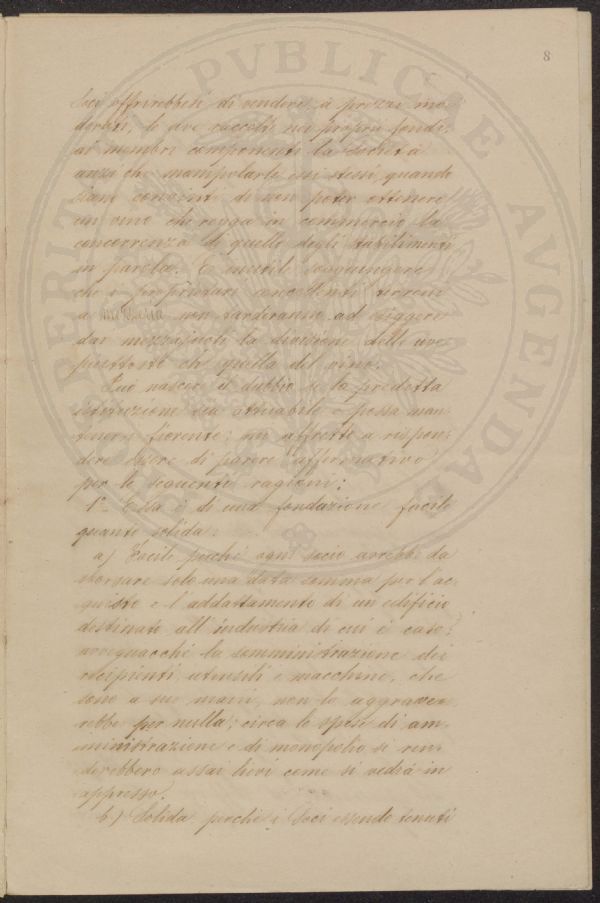 8
Soci offrirebbesi di vendere, a prezzi mo
derati, le uve raccolte nei proprii fondi,
ai membri componenti la Società
anzi che manipolarle essi stessi, quando
siano convinti di non poter ottenere
un vino che regga in commercio la
concorrenza di quello degli stabilimenti
in parola. È inutile soggiungere
che i proprietari concedenti terreni
a mezzadria non tarderanno ad esiggere
dai mezzajuoli la divisione delle uve
piuttosto che quella del vino.
Può nascere il dubbio se la predetta
istituzione sia attuabile e possa man
tenersi fiorente; mi affretto a rispon
dere essere di parere affermativo
per le seguenti ragioni:
1° Essa è di una fondazione facile
quanto solida:
a) Facile perchè ogni socio avrebbe da
sborsare solo una data somma per l'ac
quisto e l'addattamento di un edificio
destinato all'industria di cui è caso;
avvegnacchè la somministrazione dei
recipienti, utensili e macchine, che
sono a sue mani, non lo aggrave
rebbe per nulla; circa le spese di am
ministrazione e di monopolio si ren
derebbero assai lievi come si vedrà in
appresso.
b) Solida perchè i Soci essendo tenuti
PVBLICAE
AVGENDAE